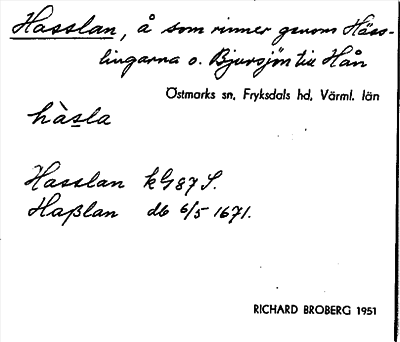 Hasslan, å som rinner genom Häss-
lingarna o. Bjursjön till Hån
Östmarks sn, Fryksdals hd, Värml. län
hàsla
Hasslan kG87 S.
Haßlan db 6/5 1671.
RICHARD BROBERG 1951